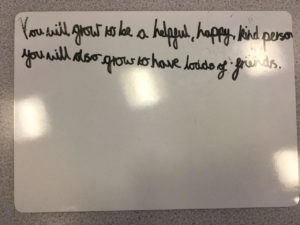 You will grow to be a helpful, happy, kind person
you will also grow to have loads of friends.